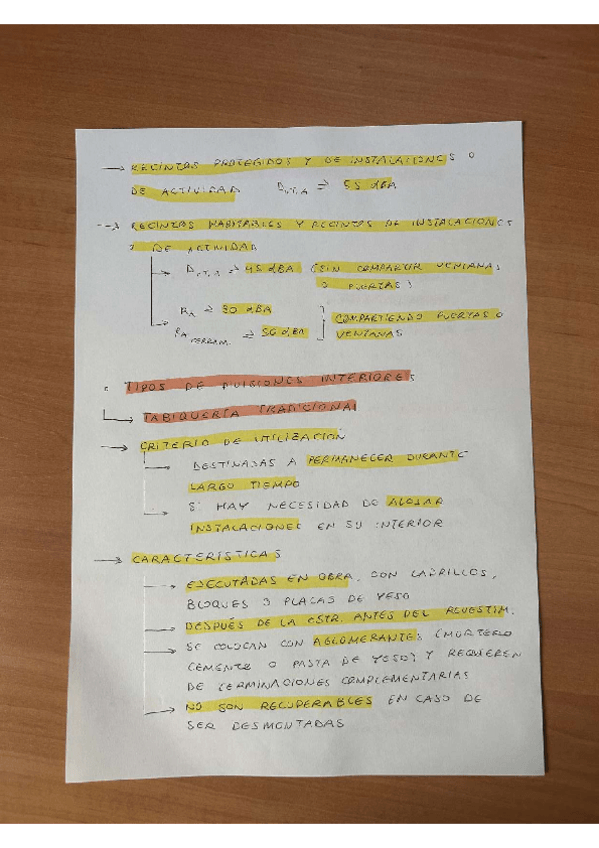 → RECINTOS PROTEGIDOS Y DE INSTALACIONES O
DE ACTIVIDAD D nT,A ≥ 55 dBA
→ RECINTOS HABITABLES Y RECINTOS DE INSTALACIONES
O DE ACTIVIDAD
D nT,A ≥ 45 dBA (SIN COMPARTIR VENTANAS
O PUERTAS)
RA ≥ 30 dBA
COMPARTIENDO PUERTAS O
RA CERRAM. ≥ 50 dBA
VENTANAS
· TIPOS DE DIVISIONES INTERIORES
→ TABIQUERÍA TRADICIONAL
→ CRITERIO DE UTILIZACIÓN
DESTINADAS A PERMANECER DURANTE
LARGO TIEMPO
→ SI HAY NECESIDAD DE ALOJAR
INSTALACIONES EN SU INTERIOR
→ CARACTERÍSTICAS
→ EJECUTADAS EN OBRA, CON LADRILLOS,
BLOQUES O PLACAS DE YESO
→ DESPUÉS DE LA ESTR. ANTES DEL REVESTIM.
→ SE COLOCAN CON AGLOMERANTES (MORTERO
CEMENTO O PASTA DE YESO) Y REQUIEREN
DE TERMINACIONES COMPLEMENTARIAS
→ NO SON RECUPERABLES EN CASO DE
SER DESMONTADAS